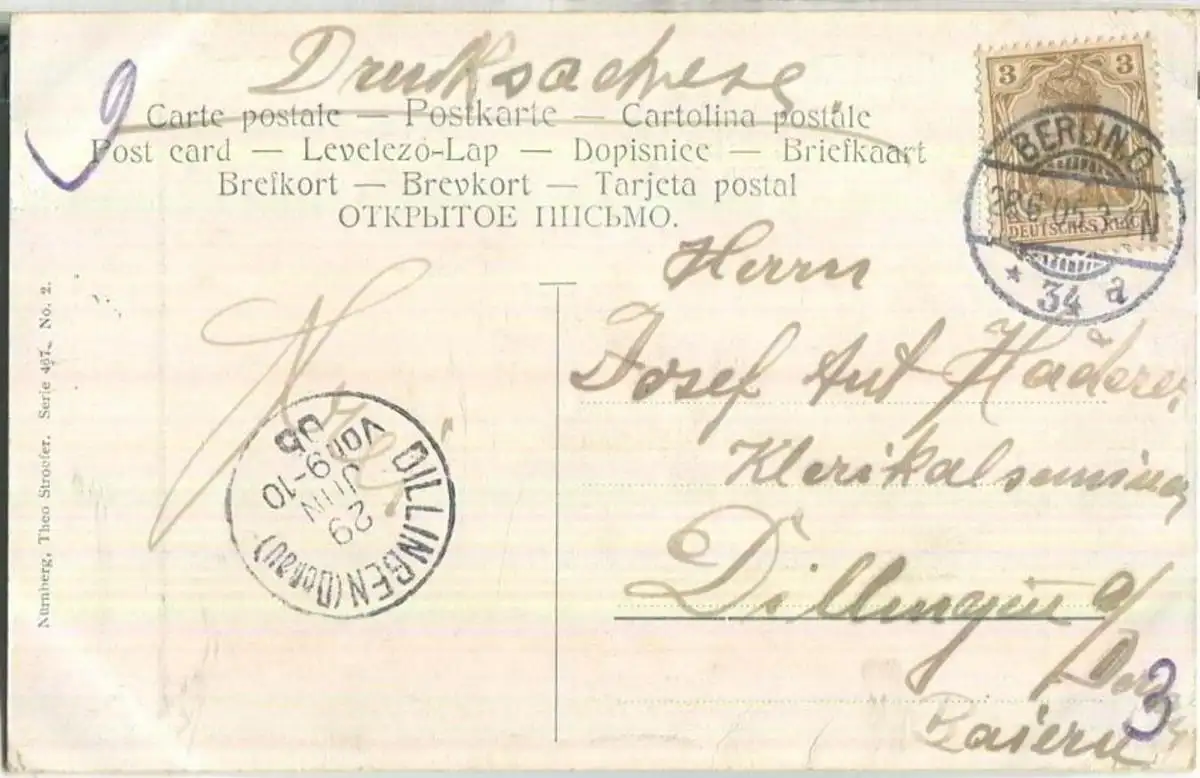 Drucksache
Carte postale — Postkarte — Cartolina postale
Post card — Levelező-Lap — Dopisnice — Briefkaart
Brefkort — Brevkort — Tarjeta postal
ОТКРЫТОЕ ПИСЬМО.
3 3
DEUTSCHES REICH
BERLIN.O.
28.6.05.3-N
* 34 a
Herrn
Josef Ant
Klerikalseminar
Dillingen a/
Baiern
3
DILLINGEN (Donau)
29
JUN
9-10
Vor
05
Nürnberg, Theo Stroefer. Serie 467. No. 2.